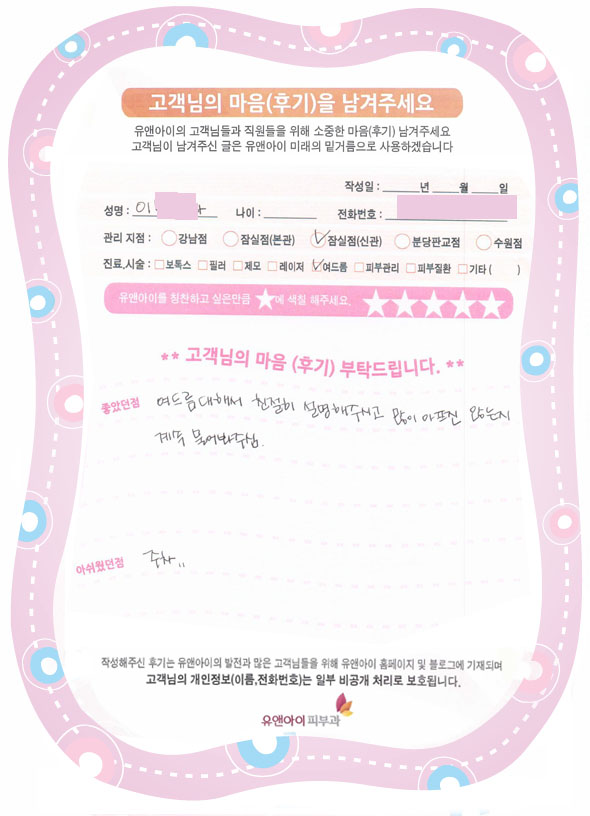 고객님의 마음(후기)을 남겨주세요
유앤아이의 고객님들과 직원들을 위해 소중한 마음(후기) 남겨주세요
고객님이 남겨주신 글은 유앤아이 미래의 밑거름으로 사용하겠습니다
작성일 : 년 월 일
성명 : 이 나이 : 전화번호 :
관리 지점 : 강남점 잠실점(본관) 잠실점(신관) 분당판교점 수원점
진료.시술 : 보톡스 필러 제모 레이저 여드름 피부관리 피부질환 기타 ( )
유앤아이를 칭찬하고 싶은만큼 ★에 색칠 해주세요.
** 고객님의 마음 (후기) 부탁드립니다. **
좋았던점 여드름대해서 친절히 설명해주시고 많이 아프진 않는지
계속 물어봐주심.
아쉬웠던점 주차..
작성해주신 후기는 유앤아이의 발전과 많은 고객님들을 위해 유앤아이 홈페이지 및 블로그에 기재되며
고객님의 개인정보(이름,전화번호)는 일부 비공개 처리로 보호됩니다.
유앤아이피부과